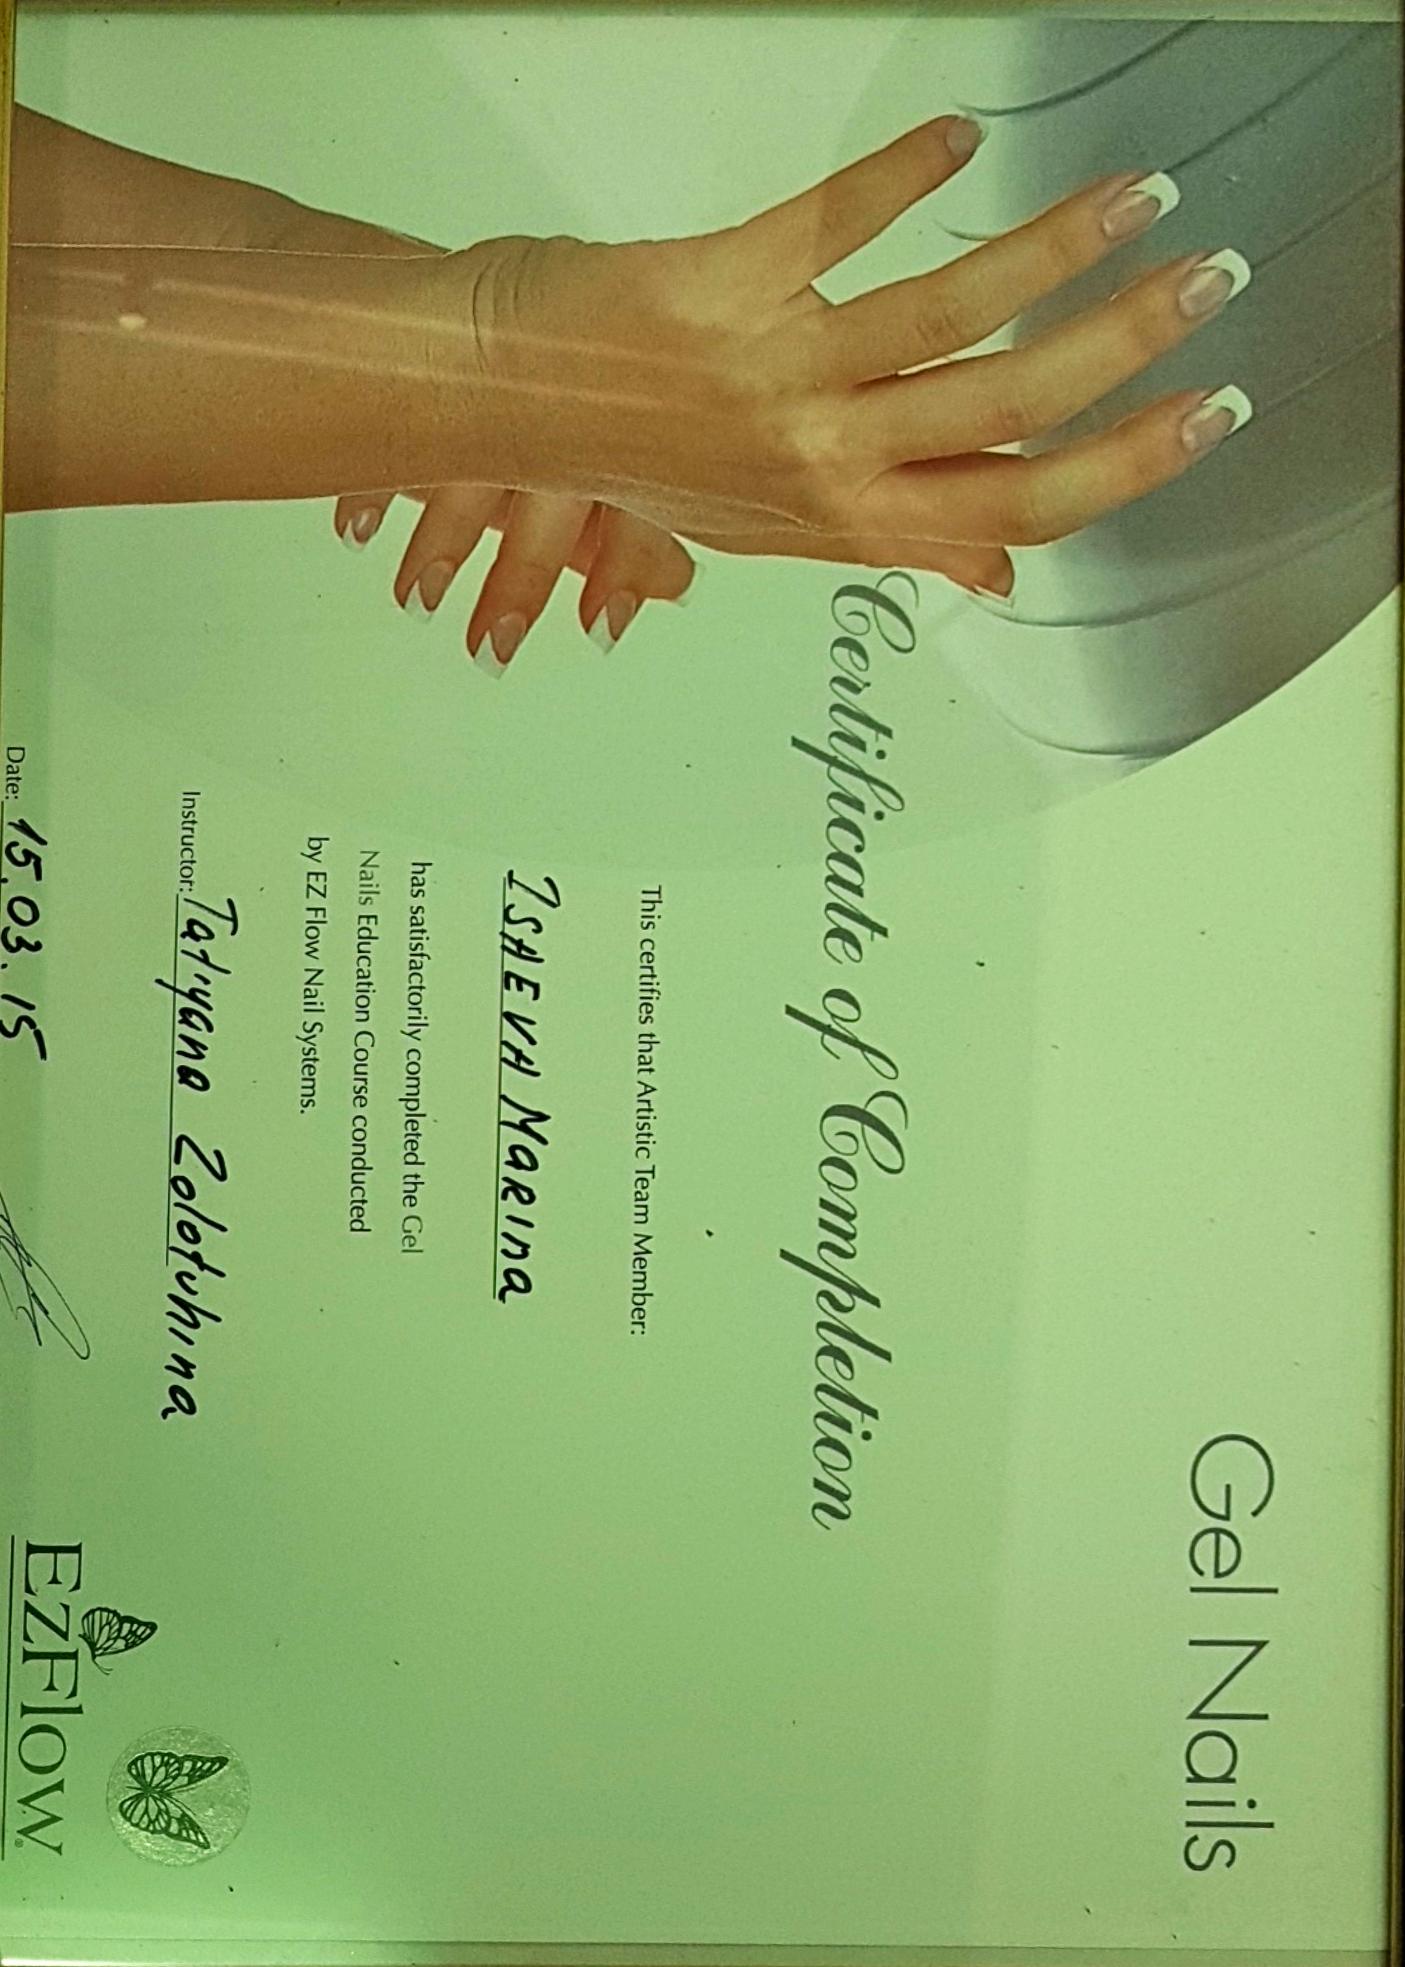 Gel Nails
Certificate of Completion
This certifies that Artistic Team Member:
ISAEVA MARINA
has satisfactorily completed the Gel
Nails Education Course conducted
by EZ Flow Nail Systems.
Instructor: Tatiyana Zolotuhina
Date: 15.03.15
EZFLOW®